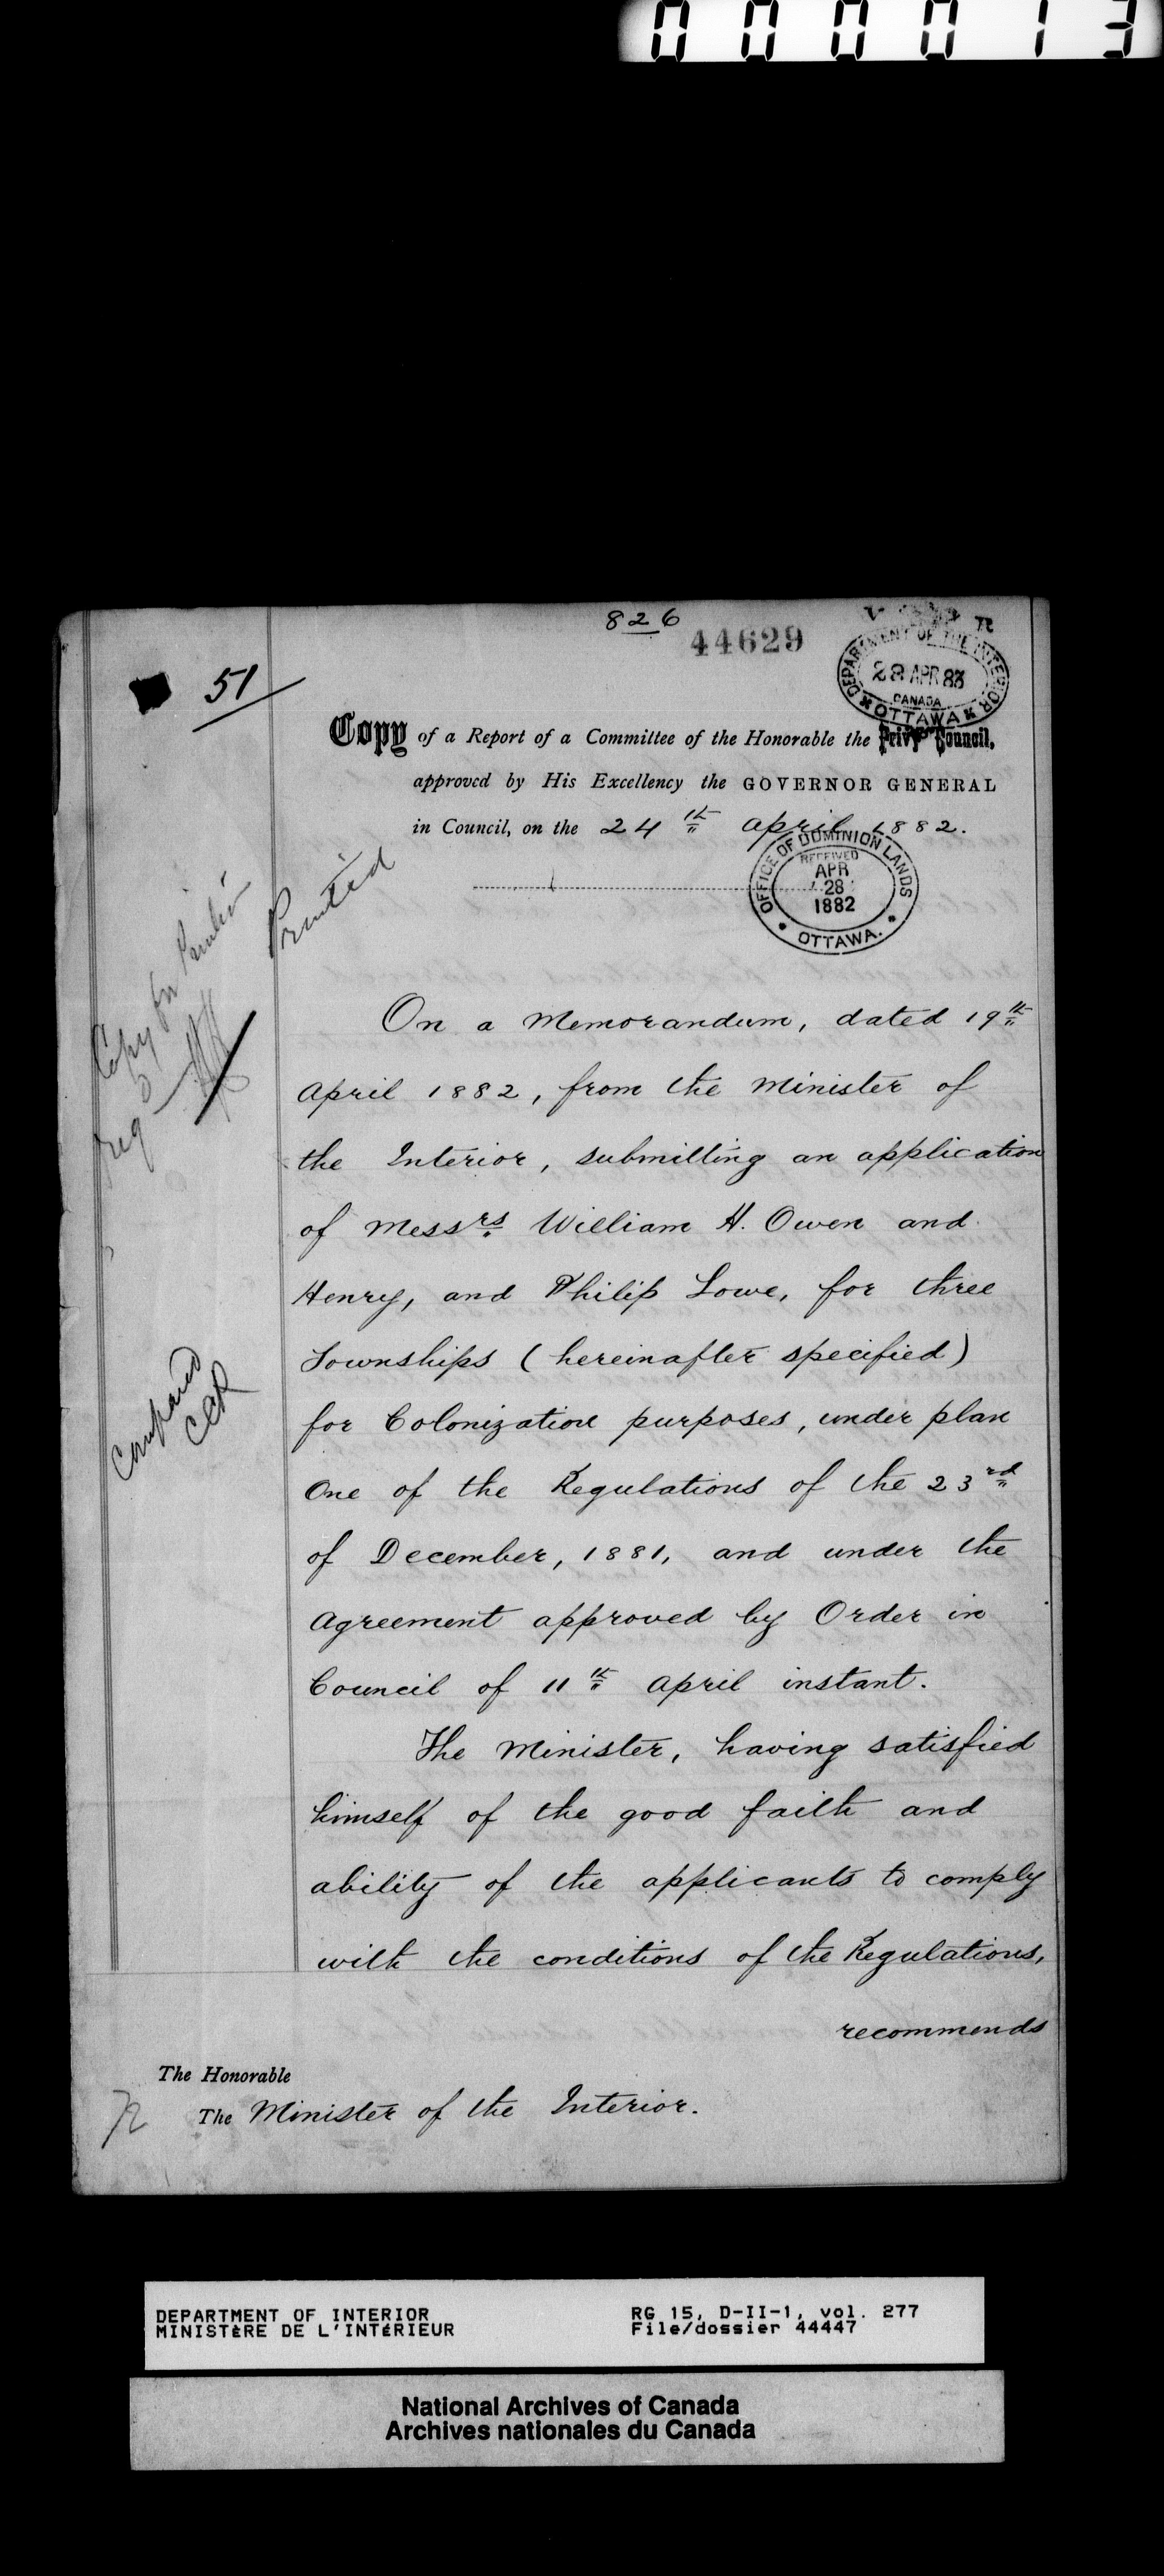 000013
826
44629
DEPARTMENT OF THE INTERIOR
28 APR 83
CANADA
OTTAWA
51
Copy of a Report of a Committee of the Honorable the Privy Council,
approved by His Excellency the GOVERNOR GENERAL
in Council, on the 24th April 1882.
OFFICE OF DOMINION LANDS
RECEIVED
APR
28
1882
OTTAWA.
Printed
Copy for
On a Memorandum, dated 19th
April 1882, from the Minister of
the Interior, submitting an application
of Messrs. William H. Owen and
Henry, and Philip Lowe, for three
Townships (hereinafter specified)
for Colonization purposes, under plan
One of the Regulations of the 23rd
of December, 1881, and under the
Agreement approved by Order in
Council of 11th April instant.
Compared
CCR
The Minister, having satisfied
himself of the good faith and
ability of the applicants to comply
with the conditions of the Regulations,
recommends
The Honorable
The Minister of the Interior.
72
DEPARTMENT OF INTERIOR
MINISTÈRE DE L'INTÉRIEUR
RG 15, D-II-1, vol. 277
File/dossier 44447
National Archives of Canada
Archives nationales du Canada